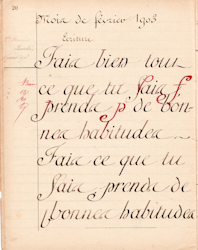 20
Mois de février 1903
Ecriture
Fais bien tout
ce que tu fais f
prends p de bon-
nes habitudes
Fais ce que tu
fais prends de
bonnes habitudes